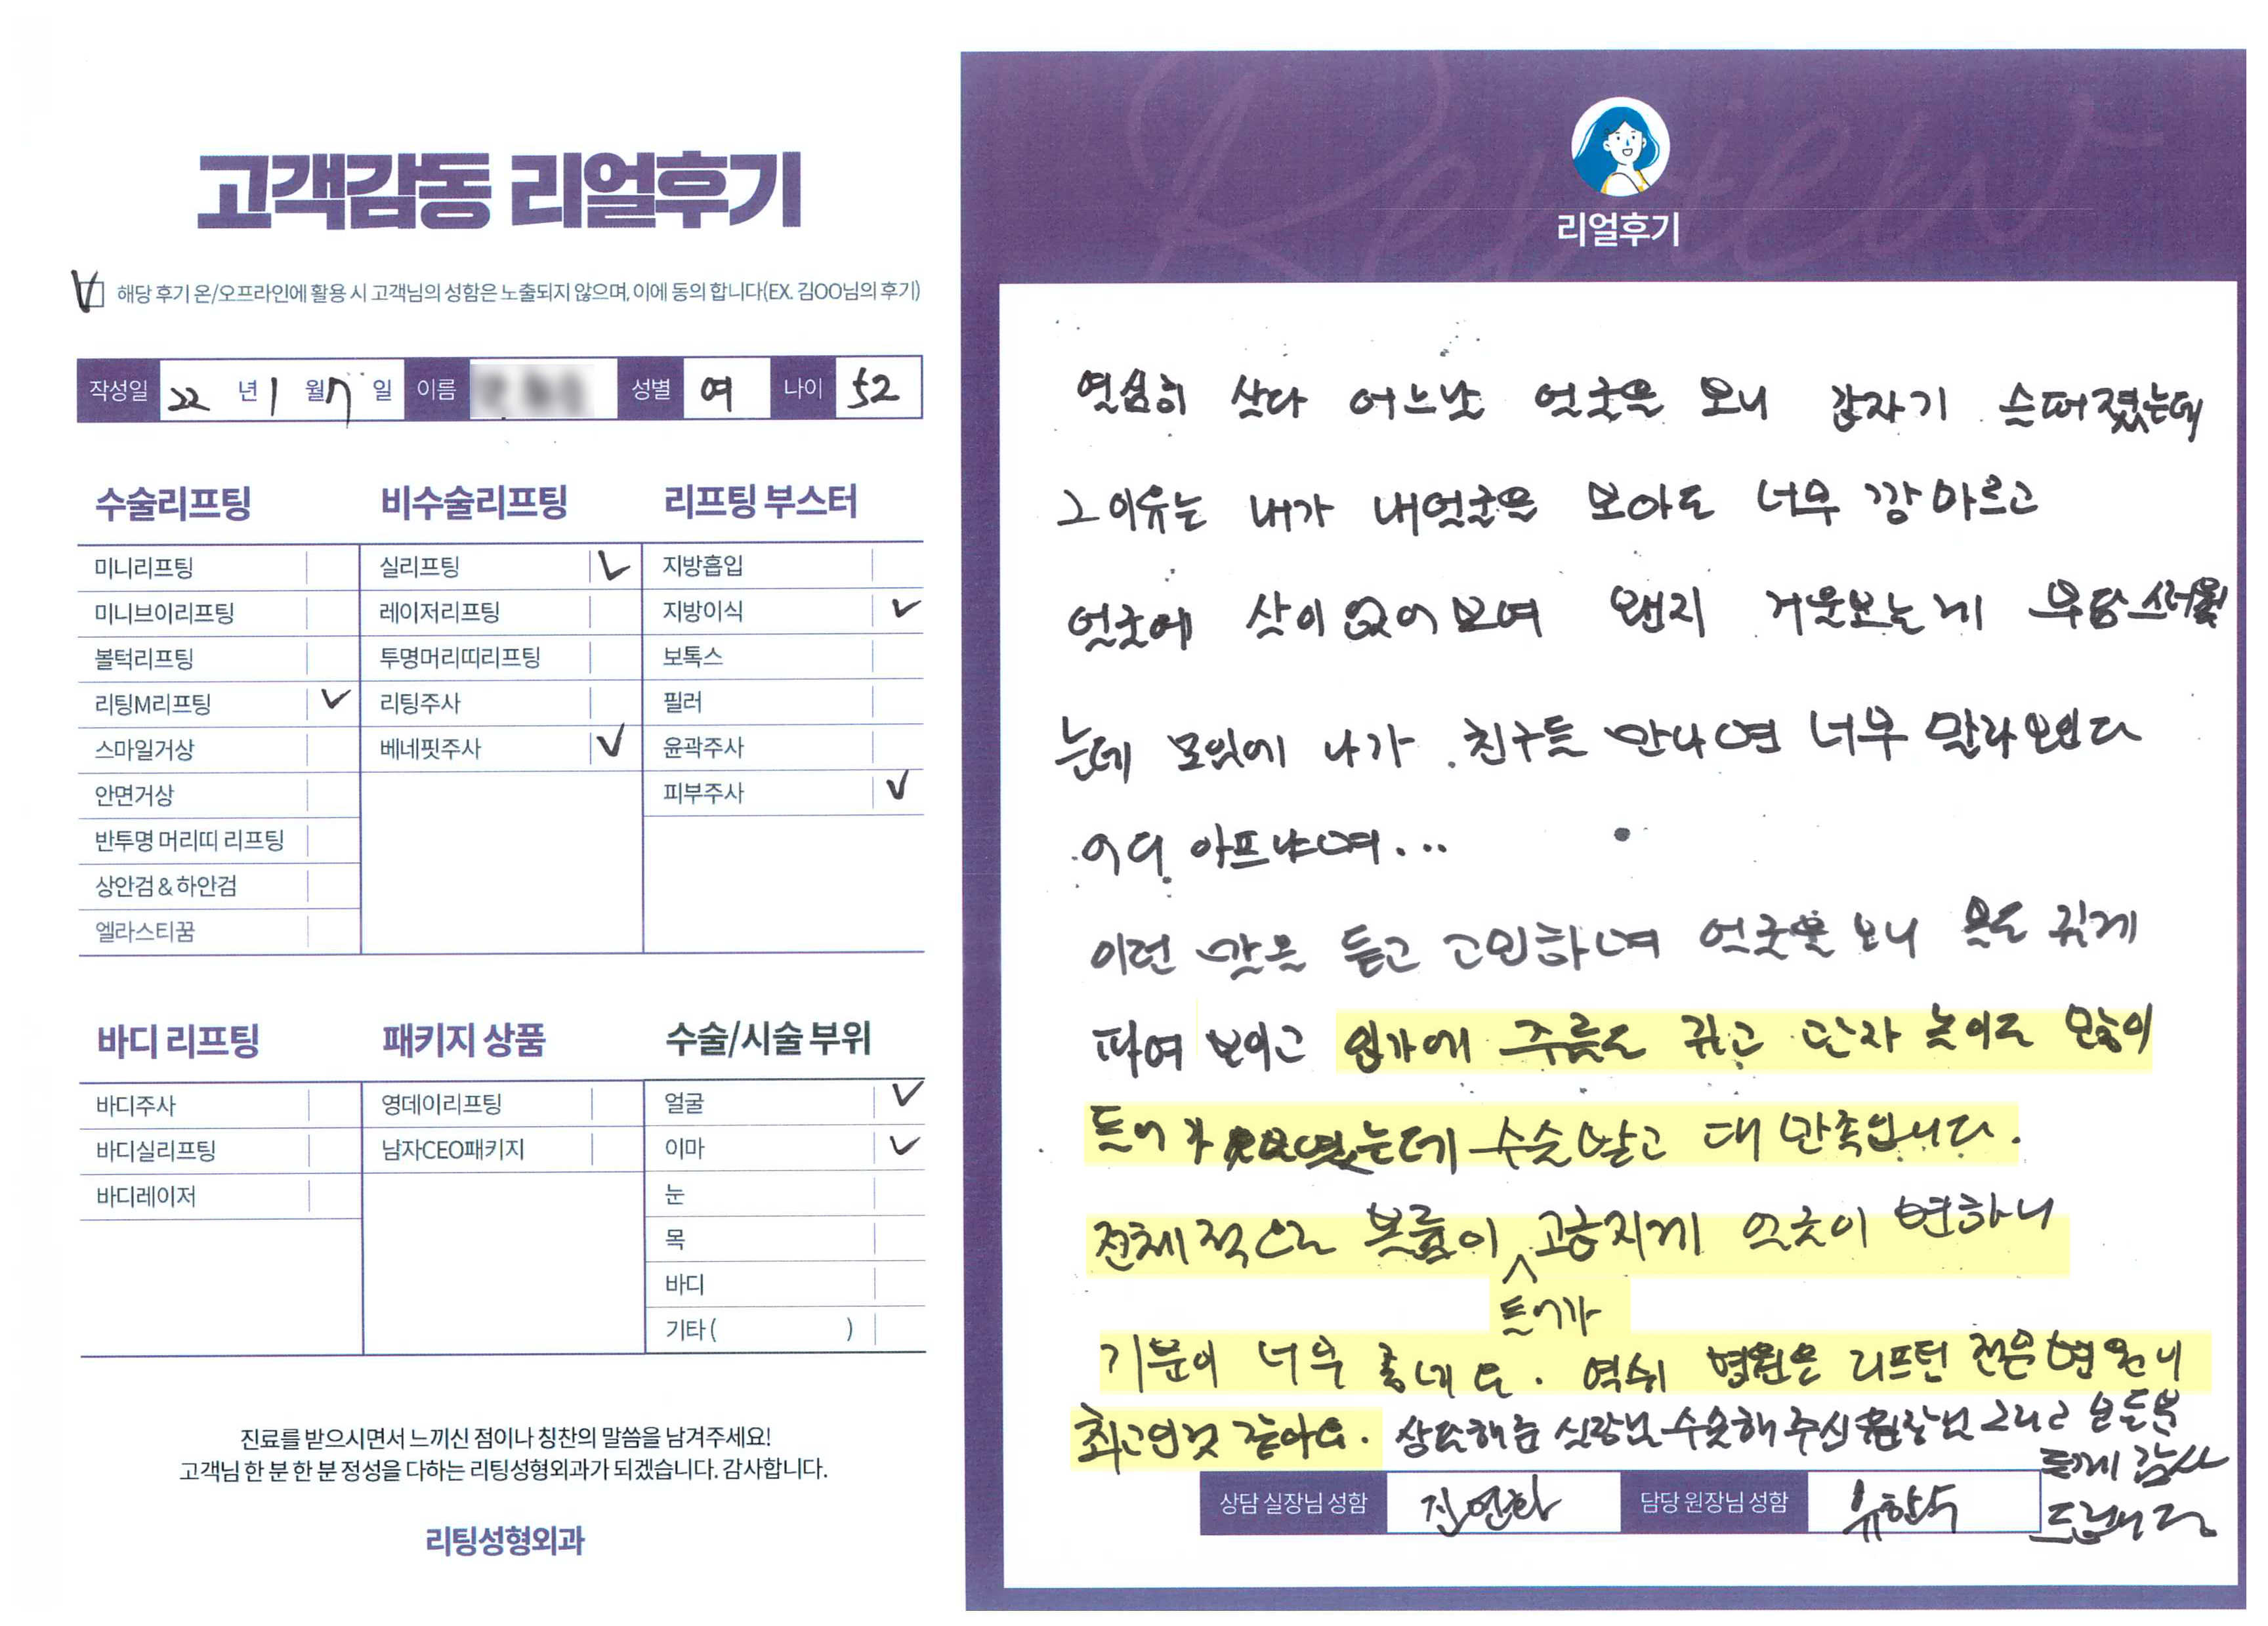 고객감동 리얼후기
해당 후기 온/오프라인에 활용 시 고객님의 성함은 노출되지 않으며, 이에 동의 합니다(EX. 김OO님의 후기)
작성일 22 년 1 월 7 일 이름 성별 여 나이 52
수술리프팅
미니리프팅
미니브이리프팅
볼턱리프팅
리팅M리프팅
스마일거상
안면거상
반투명 머리띠 리프팅
상안검 & 하안검
엘라스티꿈
비수술리프팅
실리프팅
레이저리프팅
투명머리띠리프팅
리팅주사
베네핏주사
리프팅 부스터
지방흡입
지방이식
보톡스
필러
윤곽주사
피부주사
바디 리프팅
바디주사
바디실리프팅
바디레이저
패키지 상품
영데이리프팅
남자CEO패키지
수술/시술 부위
얼굴
이마
눈
목
바디
기타 ( )
진료를 받으시면서 느끼신 점이나 칭찬의 말씀을 남겨주세요!
고객님 한 분 한 분 정성을 다하는 리팅성형외과가 되겠습니다. 감사합니다.
리팅성형외과
Review
리얼후기
열심히 살다 어느날 얼굴을 보니 갑자기 슬퍼졌는데
그 이유는 내가 내얼굴을 보아도 너무 깡마르고
얼굴에 살이 없어 보여 왠지 거울보는게 부담스러웠
는데 모임에 나가 친구들 만나면 너무 말라보인다
어디 아프냐며...
이런 말을 듣고 고민하며 얼굴을 보니 볼도 깊게
파여 보이고 입가에 주름도 깊고 관자 놀이도 많이
들어가 는데 수술 받고 대 만족입니다.
전체적으로 볼륨이 고급지게 얼굴이 변하니
들어가
기분이 너무 좋네요. 역쉬 병원은 리프팅 전문병원이
최고인것 같아요. 상담해준 실장님 수술해주신 원장님 그리고 모든분
들께 감사
드립니다
상담 실장님 성함 담당 원장님 성함